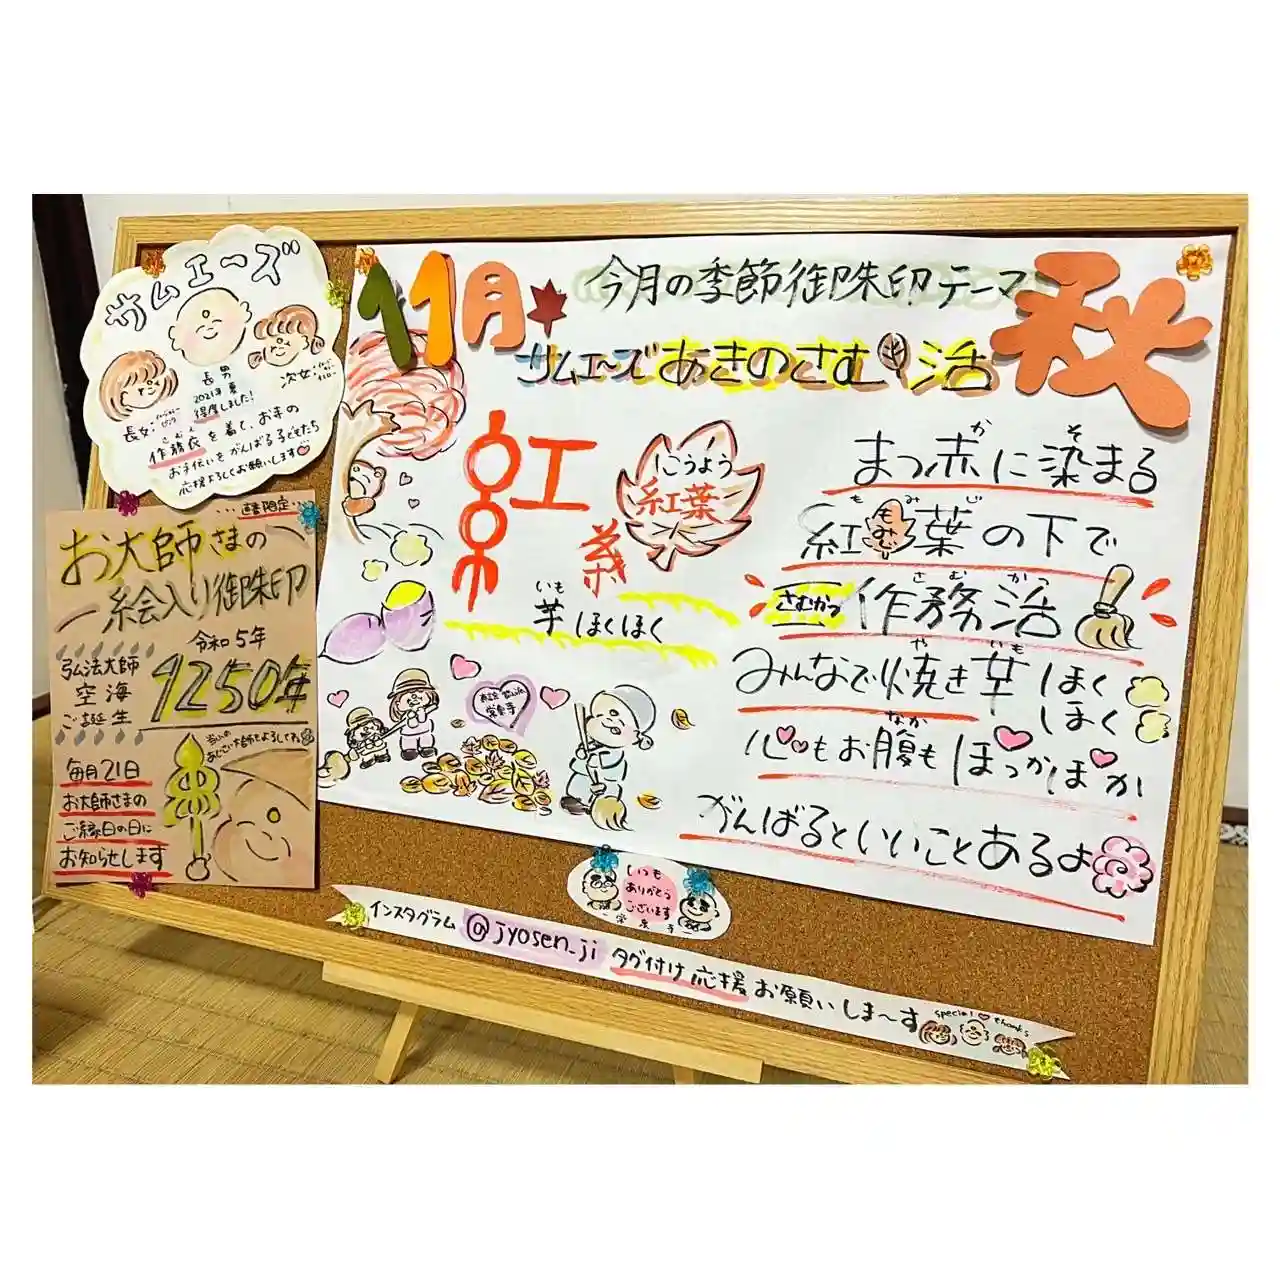 サムエーズ
長男
2021年夏
得度しました!
次女:
長女:
さむえ
作務衣を着て、お寺の
お手伝いをがんばる子どもたち
応援よろしくお願いします
11月
今月の季節御朱印テーマ
秋
サムエーズあきのさむ活
紅葉
こうよう
紅葉
いも
芋ほくほく
か そ
まっ赤に染まる
もみじ
紅葉の下で
もみじ
さむかつ
さむかつ 作務活
や いも
みんなで焼き芋ほく
ほく
なか
心もお腹もぽっかぽか
がんばるといいことあるよ
書置限定
お大師さまの
絵入り御朱印
令和5年
弘法大師
空海
ご誕生
1250年
毎月21日
お大師さまの
ご縁日の日に
お知らせします
いつも
ありがとう
ございます
インスタグラム @jyosen_ji タグ付け応援お願いしま〜す
special thanks